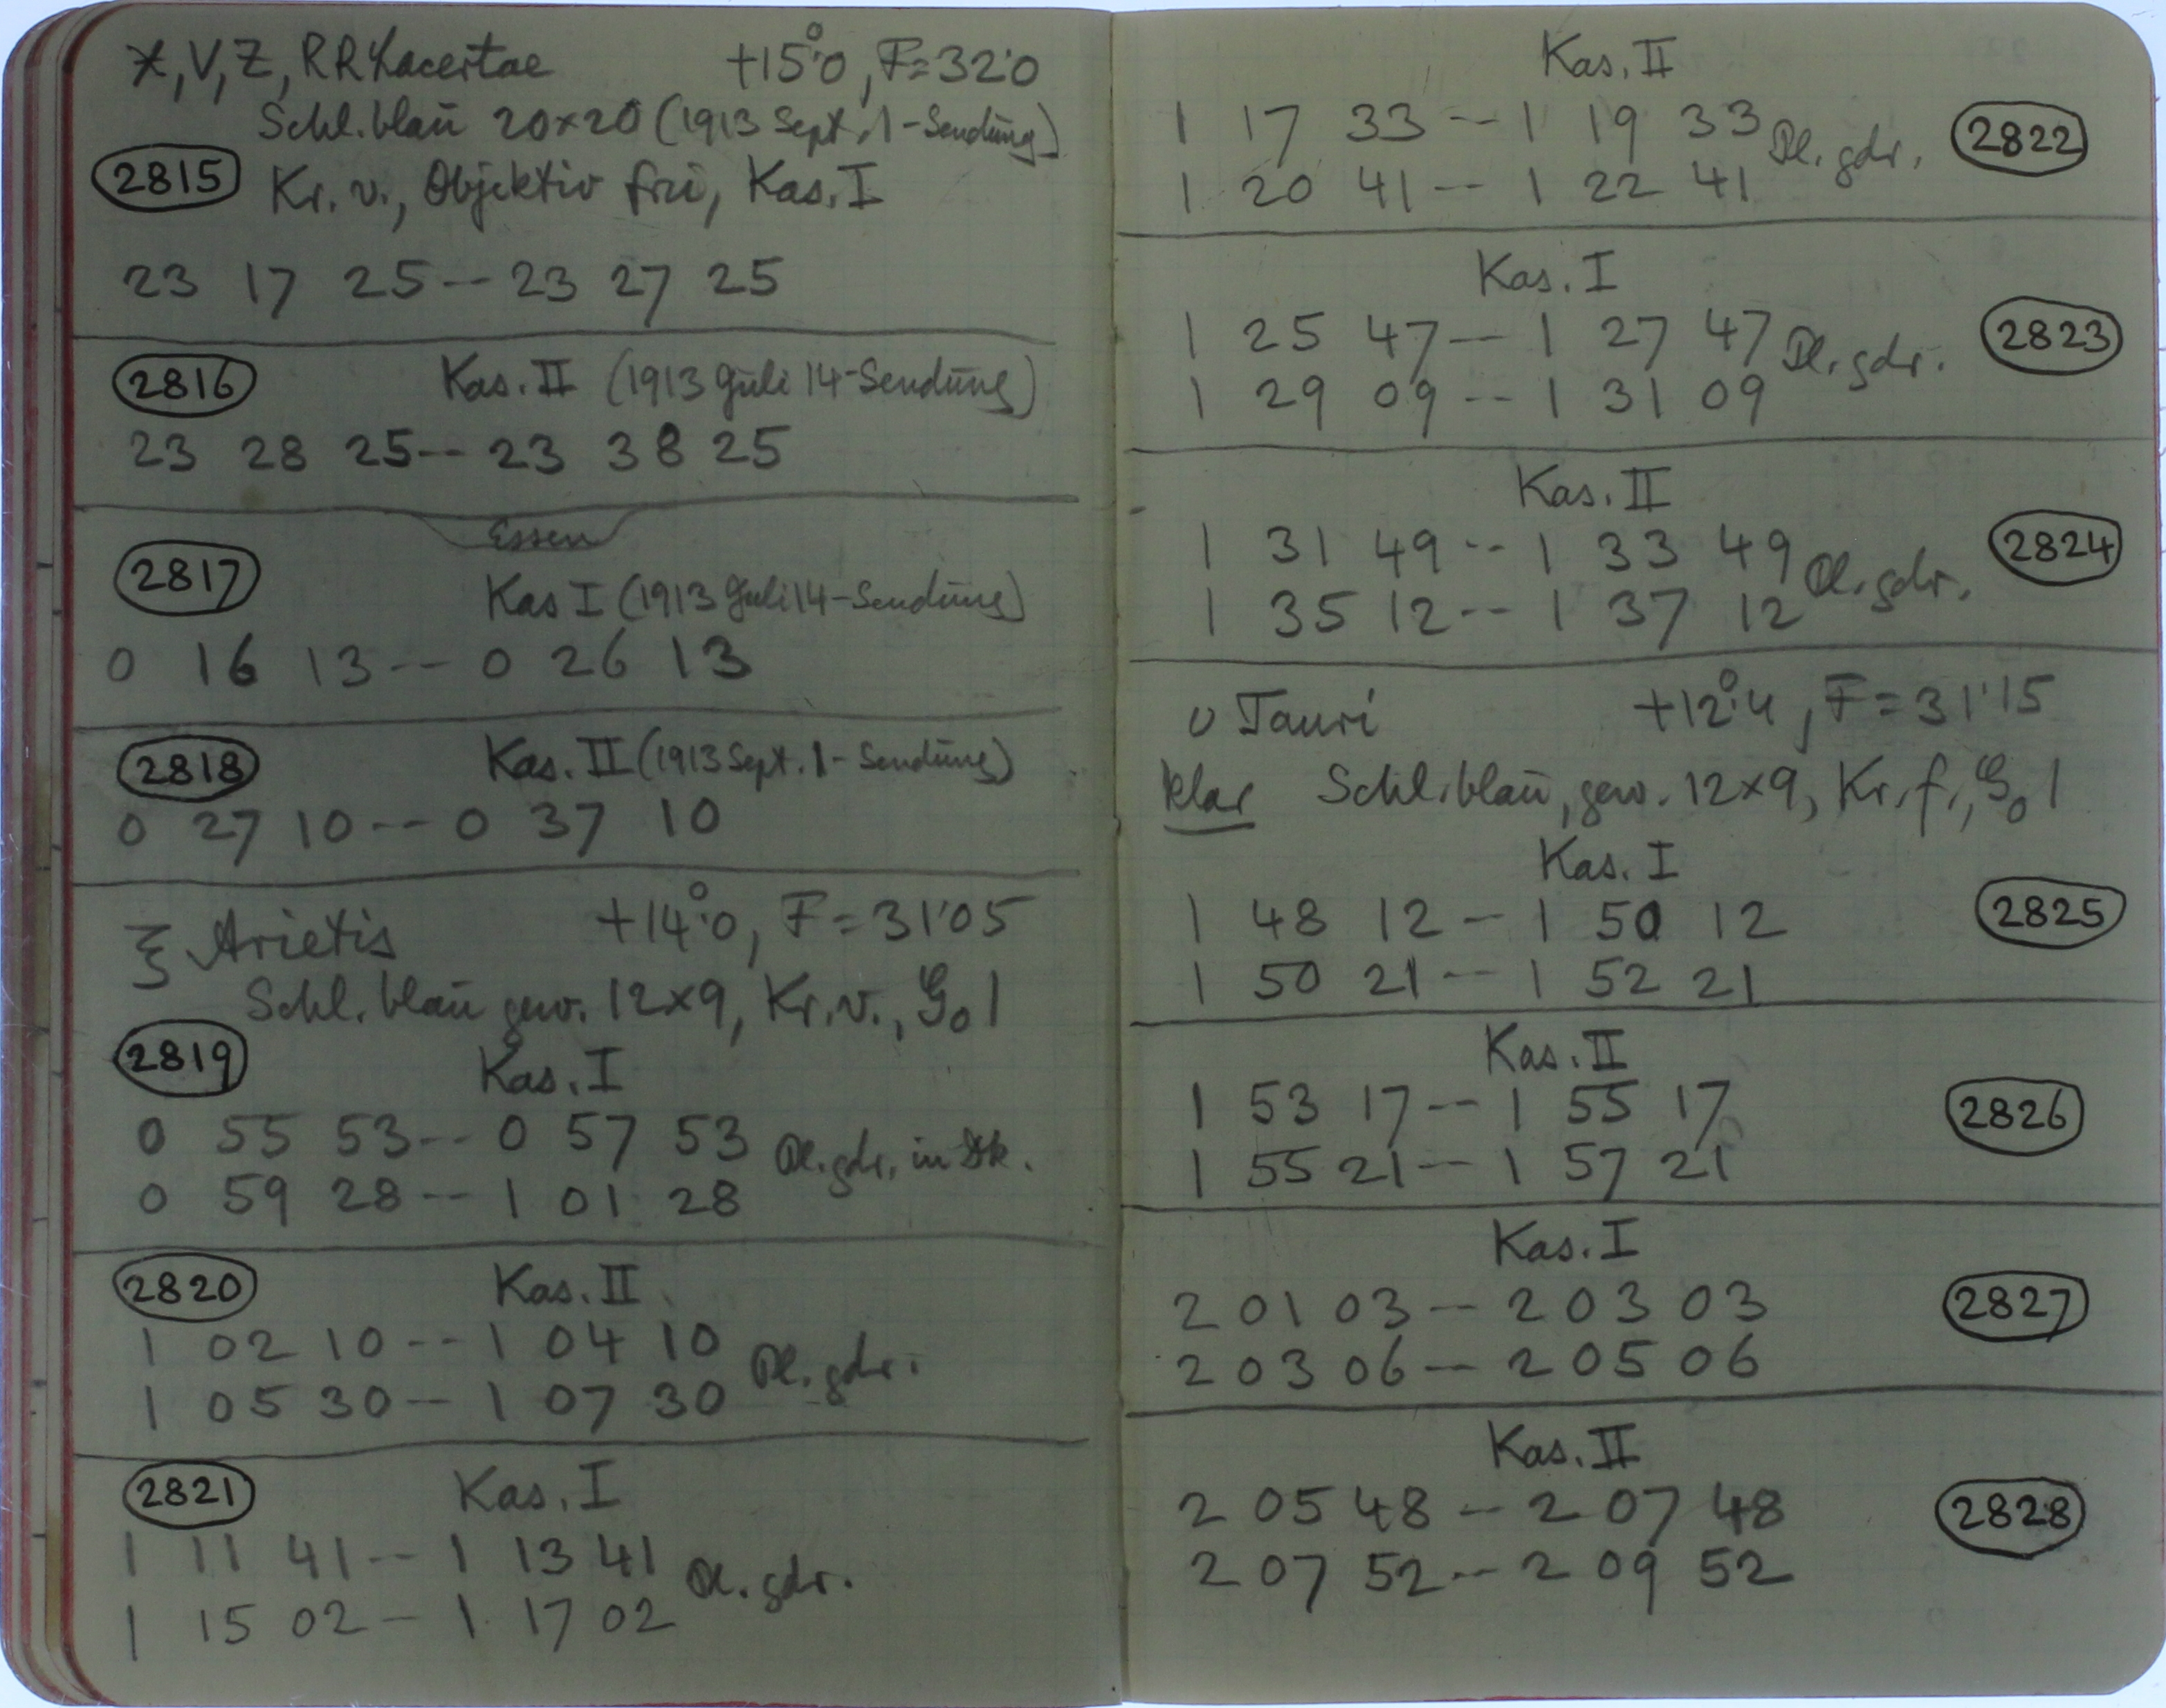 X, V, Z, RR Lacertae +15°.0, F=32.0
Schl. blau 20×20 (1913 Sept. 1-Sendung)
2815 Kr. v., Objektiv frei, Kas. I
23 17 25 -- 23 27 25
2816 Kas. II (1913 Juli 14-Sendung)
23 28 25 -- 23 38 25
Essen
2817 Kas I (1913 Juli 14-Sendung)
0 16 13 -- 0 26 13
2818 Kas. II (1913 Sept. 1-Sendung)
0 27 10 -- 0 37 10
ξ Arietis +14°.0, F=31.05
Schl. blau gew. 12×9, Kr. v., G₀ 1
2819 Kas. I
0 55 53 -- 0 57 53 Pl. gdr. in Dk.
0 59 28 -- 1 01 28
2820 Kas. II
1 02 10 -- 1 04 10 Pl. gdr.
1 05 30 -- 1 07 30
2821 Kas. I
1 11 41 -- 1 13 41 Pl. gdr.
1 15 02 - 1 17 02
Kas. II
1 17 33 -- 1 19 33 Pl. gdr. 2822
1 20 41 -- 1 22 41
Kas. I
1 25 47 -- 1 27 47 Pl. gdr. 2823
1 29 09 -- 1 31 09
Kas. II
1 31 49 -- 1 33 49 Pl. gdr. 2824
1 35 12 -- 1 37 12
υ Tauri +12°.4, F=31.15
klar Schl. blau, gew. 12×9, Kr. f., G₀ 1
Kas. I
1 48 12 - 1 50 12 2825
1 50 21 -- 1 52 21
Kas. II
1 53 17 -- 1 55 17 2826
1 55 21 -- 1 57 21
Kas. I
2 01 03 -- 2 03 03 2827
2 03 06 -- 2 05 06
Kas. II
2 05 48 -- 2 07 48 2828
2 07 52 -- 2 09 52